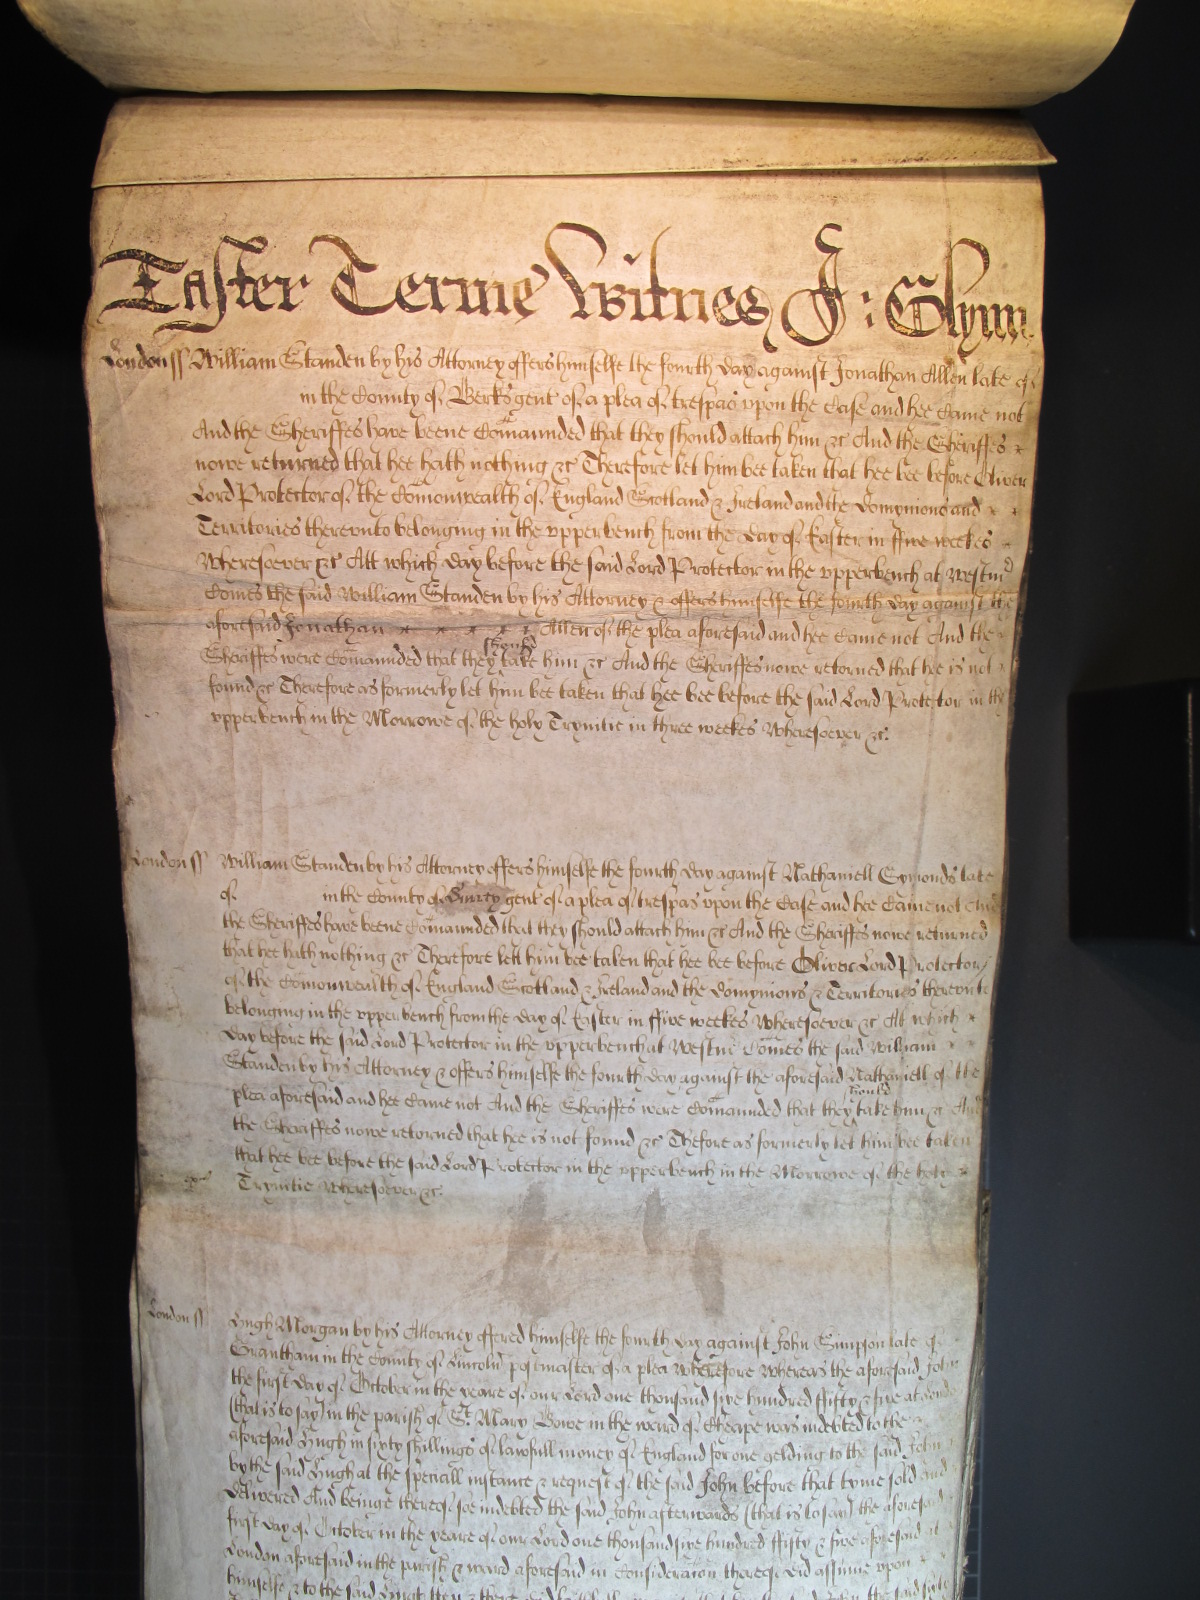 Easter Terme Witnes J: Glynn
London ss William Standen by his Attorney offers himselfe the fourth day against Jonathan Allen late of
in the County of Berks gent of a plea of trespas vpon the Case and hee Came not
And the Sheriffes have beene Comaunded that they should attach him &c And the Sheriffes
nowe returned that hee hath nothing &c Therefore let him bee taken that hee bee before Oliver
Lord Protector of the Comonwealth of England Scotland & Ireland and the Domynions and
Territories therevnto belonging in the vpperbench from the day of Easter in ffive weekes
Wheresoever &c Att which day before the said Lord Protector in the vpperbench at Westmr
Comes the said William Standen by his Attorney & offers himselfe the fourth day against the
aforesaid Jonathan Allen of the plea aforesaid and hee Came not And the
should
Sheriffes were Comaunded that they take him &c And the Sheriffes nowe retorned that he is not
found &c Therefore as formerly let him bee taken that hee bee before the said Lord Protector in the
vpperbench in the Morrowe of the holy Trynitie in three weekes Wheresoever &c.
London ss William Standen by his Attorney offers himselfe the fourth day against Nathaniell Symonds late
of in the County of Surrey gent of a plea of trespas vpon the Case and hee Came not And
the Sheriffes have beene Comaunded that they should attach him &c And the Sheriffes nowe returned
that hee hath nothing &c Therefore lett him bee taken that hee bee before Oliver Lord Protector
of the Comonwealth of England Scotland & Ireland and the Domynions & Territories therevnto
belonging in the vpperbench from the day of Easter in ffive weekes Wheresoever &c Att which
day before the said Lord Protector in the vpperbench at Westmr Comes the said William
Standen by his Attorney & offers himselfe the fourth day against the aforesaid Nathaniell of the
should
plea aforesaid and hee Came not And the Sheriffes were Comaunded that they take him &c And
the Sheriffes nowe retorned that hee is not found &c Thefore as formerly let him bee taken
that hee bee before the said Lord Protector in the vpperbench in the Morrowe of the holy
Trynitie Wheresoever &c.
London ss Hugh Morgan by his Attorney offered himselfe the fourth day against John Simpson late of
Grantham in the County of Lincoln postmaster of a plea Wherefore Whereas the aforesaid John
the first day of October in the yeare of our Lord one thousand sixe hundred ffifty & five at London
(that is to say) in the parish of St. Mary Bowe in the ward of Cheape was indebted to the
aforesaid Hugh in sixty shillings of lawfull money of England for one gelding to the said John
by the said Hugh at the speciall instance & request of the said John before that tyme sold and
delivered And beinge thereof soe indebted the said John afterwards (that is to say) the aforesaid
first day of October in the yeare of our Lord one thousand sixe hundred ffifty & five aforesaid at
London aforesaid in the parish & ward aforesaid in Consideracion thereof did assume vpon
himselfe & to the said Hugh then & there